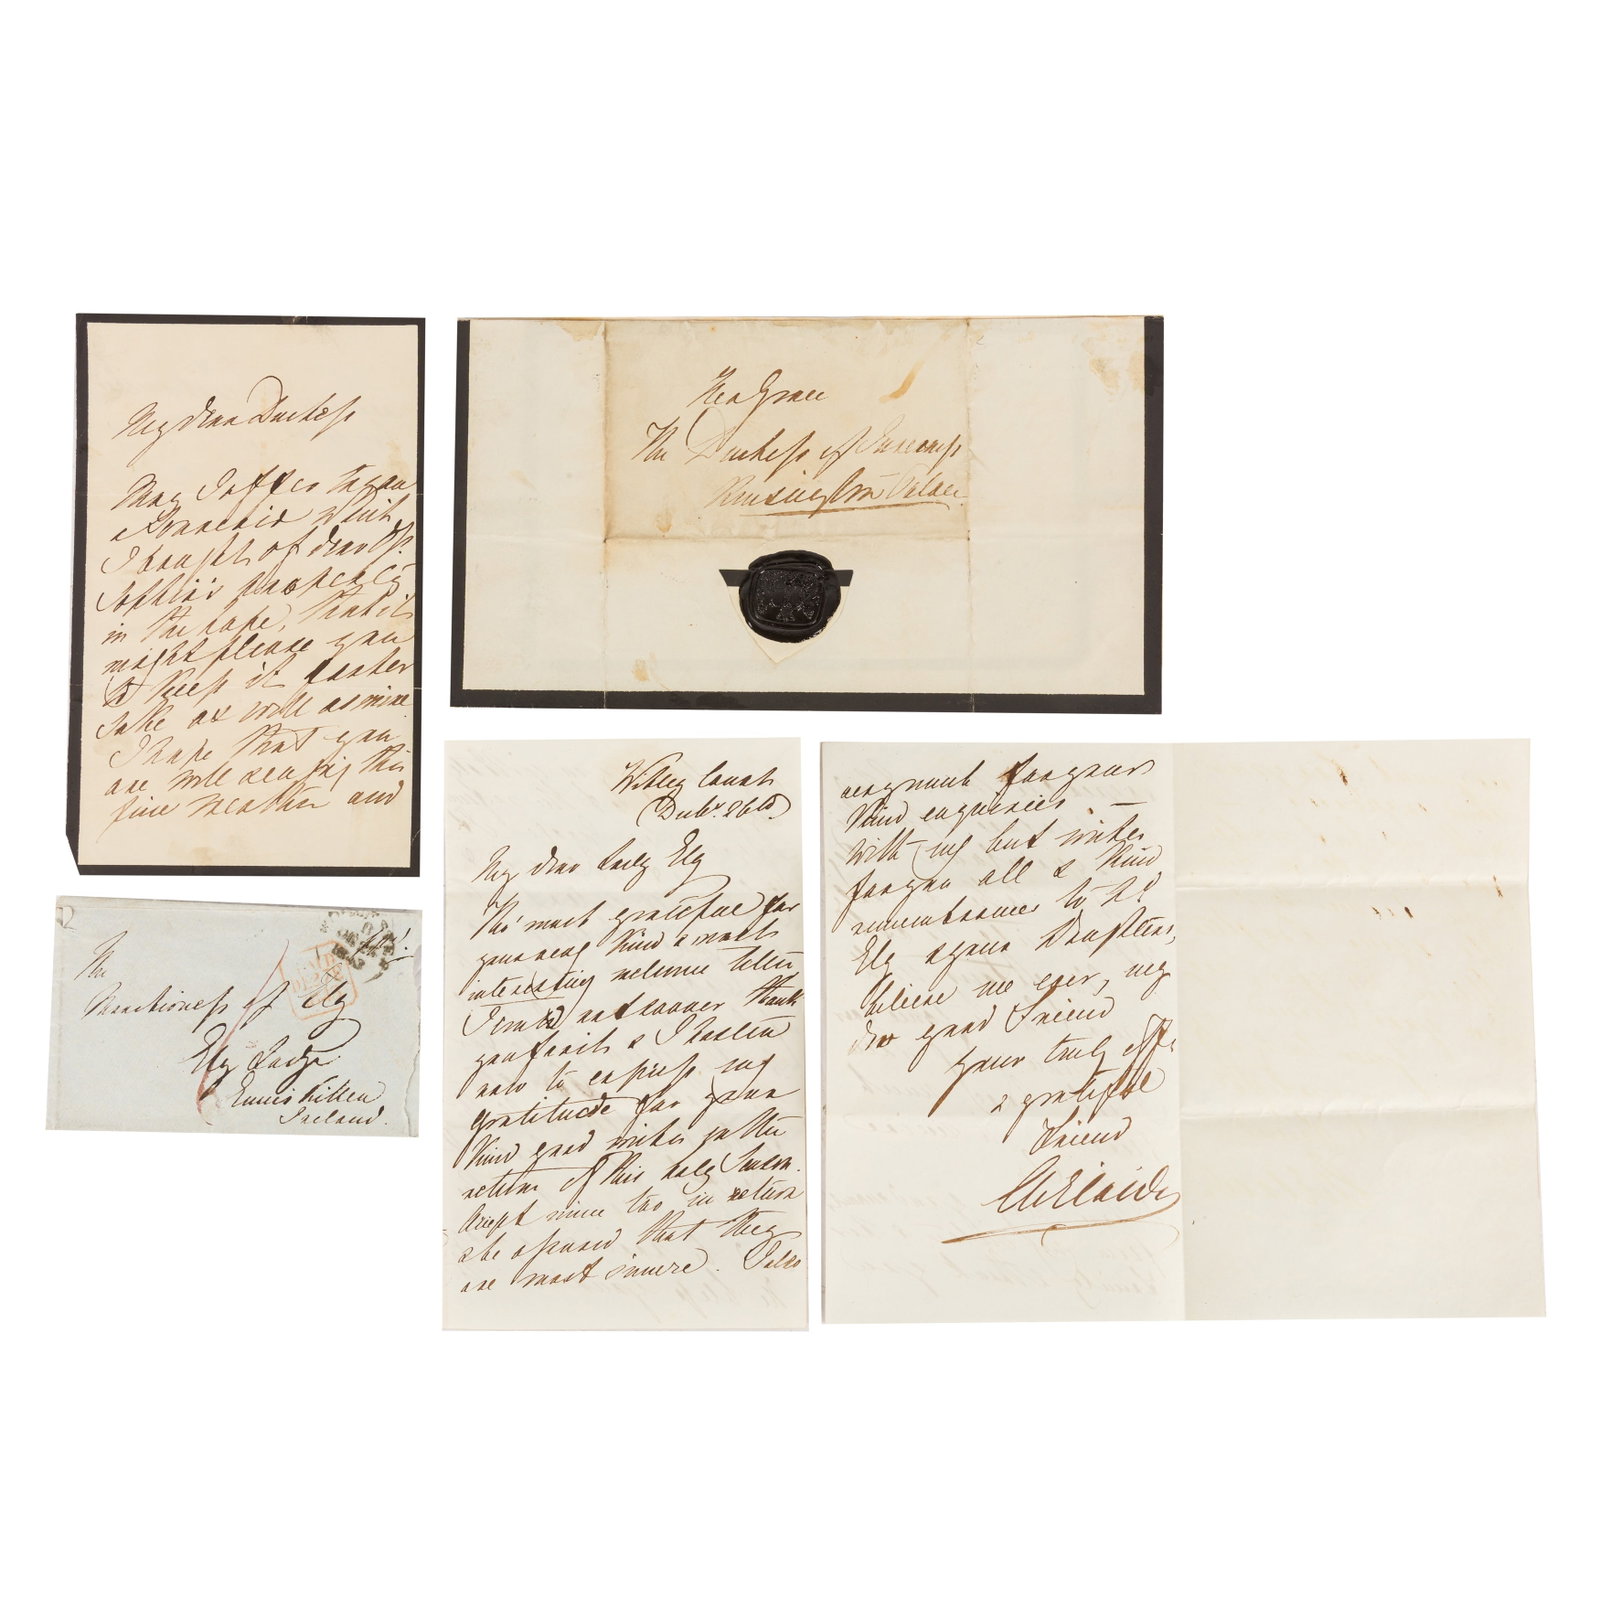 My dear Duchess
May I offer to you
a Souvenir which
I bought of dear Pss.
Sophia's property
in the hope, that it
might please you
to keep it for her
sake as well as mine
I hope that you
are well enjoying this
fine weather and
Her Grace
The Duchess of Inverness
Kensington Palace
The
Marchioness of Ely
Ely Lodge
Enniskillen
Ireland.
Witley Court
Decbr. 26th
My dear Lady Ely
Th' most grateful for
your very kind & most
interesting welcome letter
I could not sooner thank
you for it & I hasten
now to express my
gratitude for your
kind good wishes at the
return of this holy Season.
Accept mine too in return
& be assured that they
are most sincere. I also
very much for your
kind enquiries. —
With my best wishes
for you all & kind
remembrances to Ld
Ely & your Daughters,
believe me ever, my
dear good Friend
your truly aff.
& grateful
Friend
Adelaide